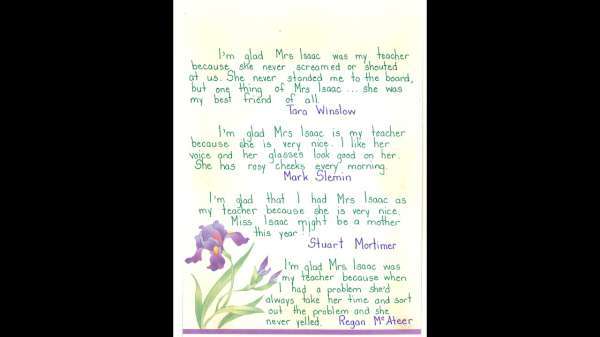 I'm glad Mrs Isaac was my teacher
because she never screamed or shouted
at us. She never standed me to the board,
but one thing of Mrs Isaac ... she was
my best friend of all.
Tara Winslow
I'm glad Mrs Isaac is my teacher
because she is very nice. I like her
voice and her glasses look good on her.
She has rosy cheeks every morning.
Mark Slemin
I'm glad that I had Mrs Isaac as
my teacher because she is very nice.
Miss Isaac might be a mother
this year!!
Stuart Mortimer
I'm glad Mrs Isaac was
my teacher because when
I had a problem she'd
always take her time and sort
out the problem and she
never yelled. Regan McAteer